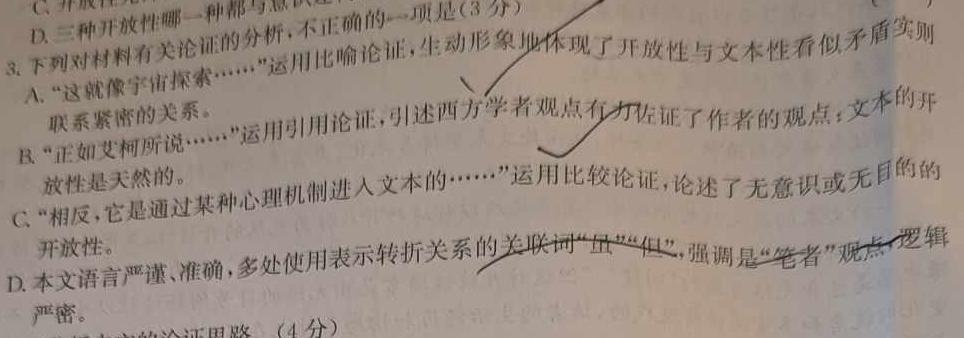 D. 三种开放性哪一种都与意识
3. 下列对材料有关论证的分析,不正确的一项是(3分)
A. “这就像宇宙探索……”运用比喻论证,生动形象地体现了开放性与文本性看似矛盾实则
联系紧密的关系。
B. “正如艾柯所说……”运用引用论证,引述西方学者观点有力佐证了作者的观点:文本的开
放性是天然的。
C. “相反,它是通过某种心理机制进入文本的……”运用比较论证,论述了无意识或无目的的
开放性。
D. 本文语言严谨、准确,多处使用表示转折关系的关联词“虽”“但”,强调是“笔者”观点,逻辑
严密。
的论证思路。(4分)